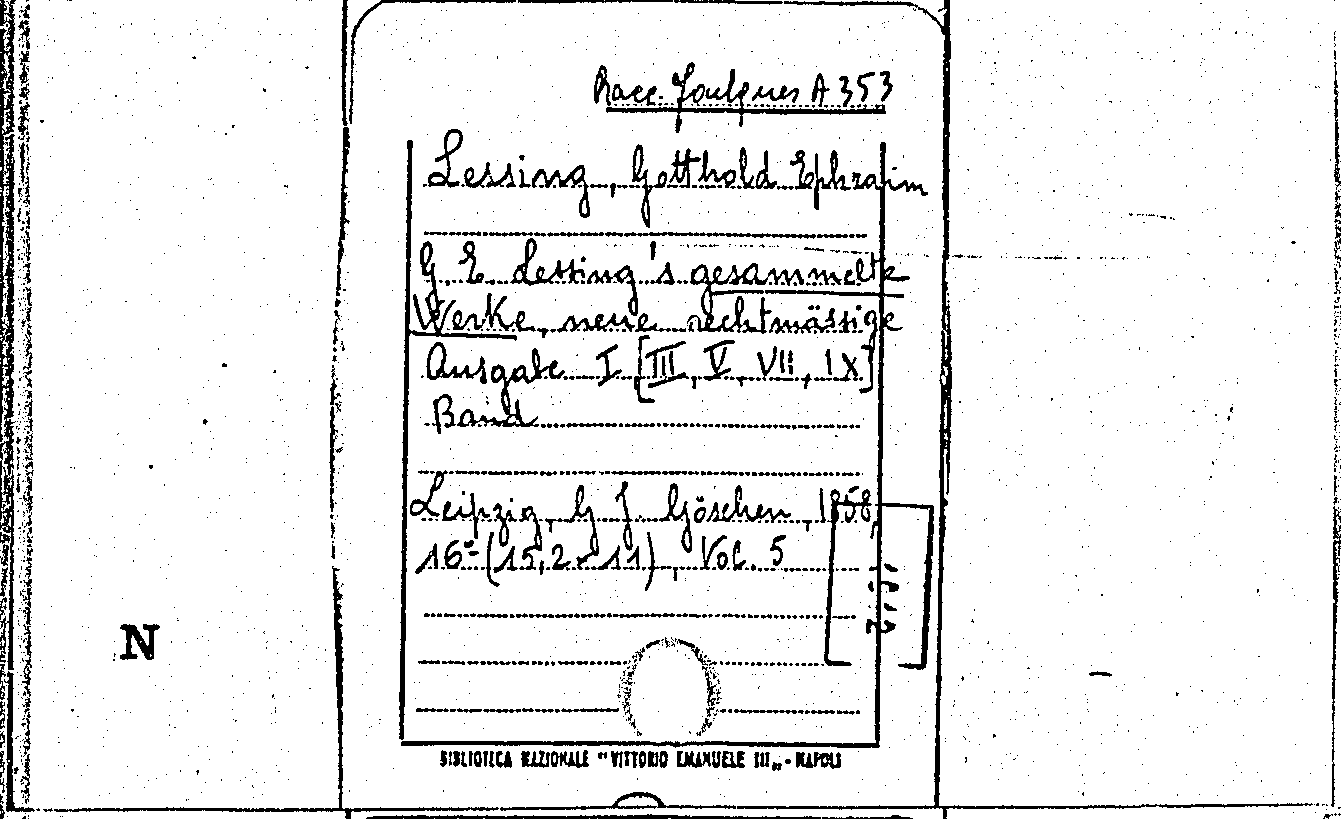 Racc. Foulques A 353
Lessing, Gotthold Ephraim
G. E. Lessing's gesammelte
Werke, neue rechtmässige
Ausgabe I [III, V, VII, IX]
Band
Leipzig, G. J. Göschen, 1858,
16º (15,2 x 11), Vol. 5
N
BIBLIOTECA NAZIONALE "VITTORIO EMANUELE III„ - NAPOLI